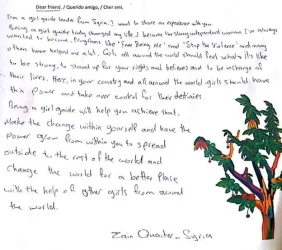 Dear friend, / Querido amigo, / Cher ami,
I'm a girl guide leader from Syria, I want to share an experience with you.
Being a girl guide today changed my life. I became the strong independent woman I've always
wanted to become. Programs like "Free Being Me" and "Stop the Violence" and many
others have helped me a lot. Girls all around the world should feel what it's like
to be strong, to stand up for your rights and believes and to be in charge of
their lives. Here, in your country and all around the world girls should have
this power and take over control for their destinies
Being a girl guide will help you achieve that.
Make the change within yourself and have the
power grow from within you to spread
outside to the rest of the world and
change the world for a better place
with the help of other girls from around
the world.
Zain - Syria